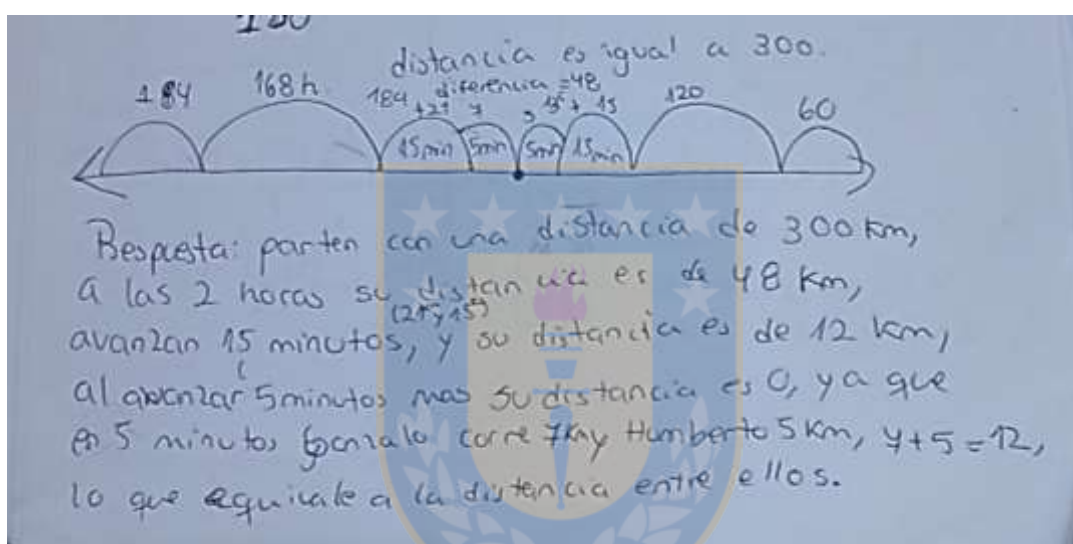 180
distancia es igual a 300.
diferencia = 48
184 168 h. 184 +21 7 5 15 + 15 120 60
15min 5min 5min 15min
Respuesta: parten con una distancia de 300 km,
a las 2 horas su distancia es de 48 Km,
(21 y 15)
avanzan 15 minutos, y su distancia es de 12 km,
al avanzar 5 minutos mas su distancia es 0, ya que
en 5 minutos Gonzalo corre 7km y Humberto 5 Km, 7+5=12,
lo que equivale a la distancia entre ellos.